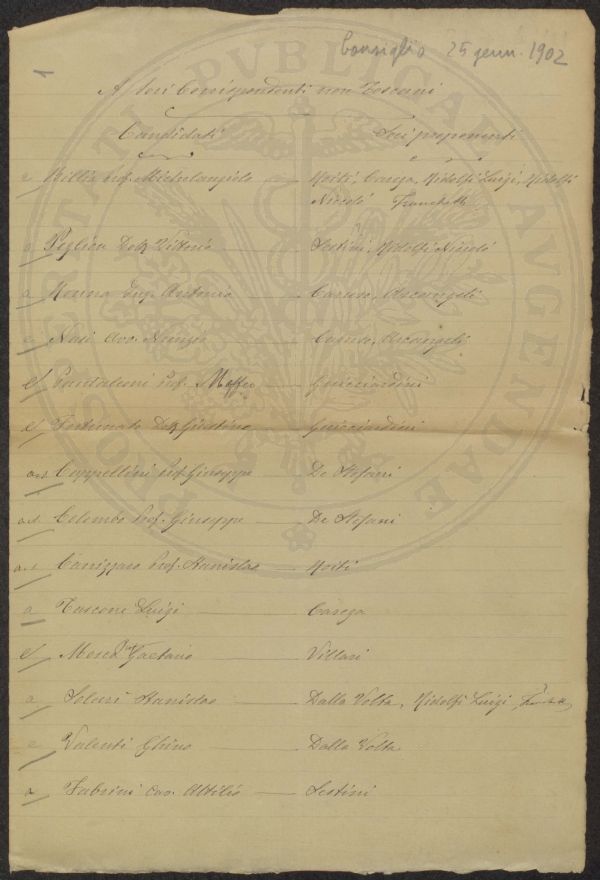 Consiglio 25 genn. 1902
1
A Soci Corrispondenti non Toscani
Candidati Soci proponenti
e Billia Prof. Michelangelo — Roiti, Carega, Ridolfi Luigi, Ridolfi
Niccolò Franchetti
a Peglion Dott. Vittorio — Sestini, Ridolfi Niccolò
a Ing. Antonio — Caruso, Arcangeli
e Nasi Avv. Nunzio — Caruso, Arcangeli
ef Pantaleoni Prof. Maffeo — Guicciardini
ef Fortunato Dott. Giustino — Guicciardini
Cappellini Prof. Giuseppe — De Stefani
Colombo Prof. Giuseppe — De Stefani
Canizzaro Prof. Stanislao — Roiti
a Tascone Luigi — Carega
ef Mosca Gaetano — Villari
a Solari Stanislao — Dalla Volta, Ridolfi Luigi,
e Valenti Ghino — Dalla Volta
a Fabrini Cav. Attilio — Sestini
PROSPERITATI PVBLICAE AVGENDAE